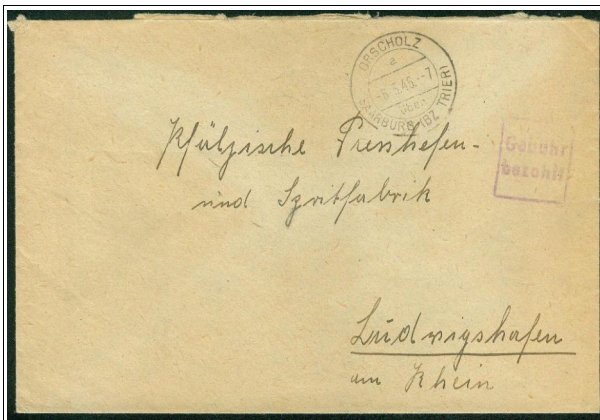 ORSCHOLZ
a
-6.3.46.--7
über
SAARBURG (BZ TRIER)
Gebühr
bezahlt
Pfälzische Presshefen-
und Spritfabrik
Ludwigshafen
am Rhein